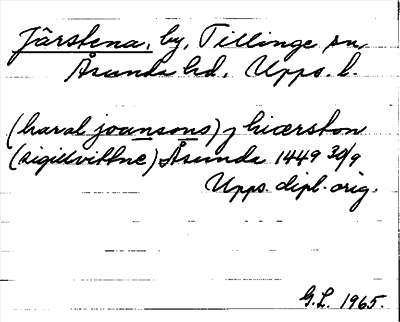 Järstena, by, Tillinge sn,
Åsunda hd, Upps. l.
(haral joansons) j hiærston
(sigillvittne) Åsunda 1449 30/9
Upps. dipl. orig.
G.L. 1965.